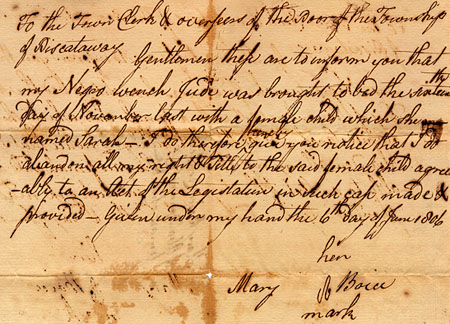 To the Town Clerk & overseers of the Poor of the Township
of Piscataway
Gentlemen these are to inform you that
my Negro wench Jude was brought to bed the sixteenth
day of November last with a female child which she
named Sarah — I do therefore hereby give you notice that I do
abandon all my right & title to the said female child agre-
-ably to an Act of the Legislature in such case made &
provided — Given under my hand the 6th day of June 1806
her
Mary Boice
mark